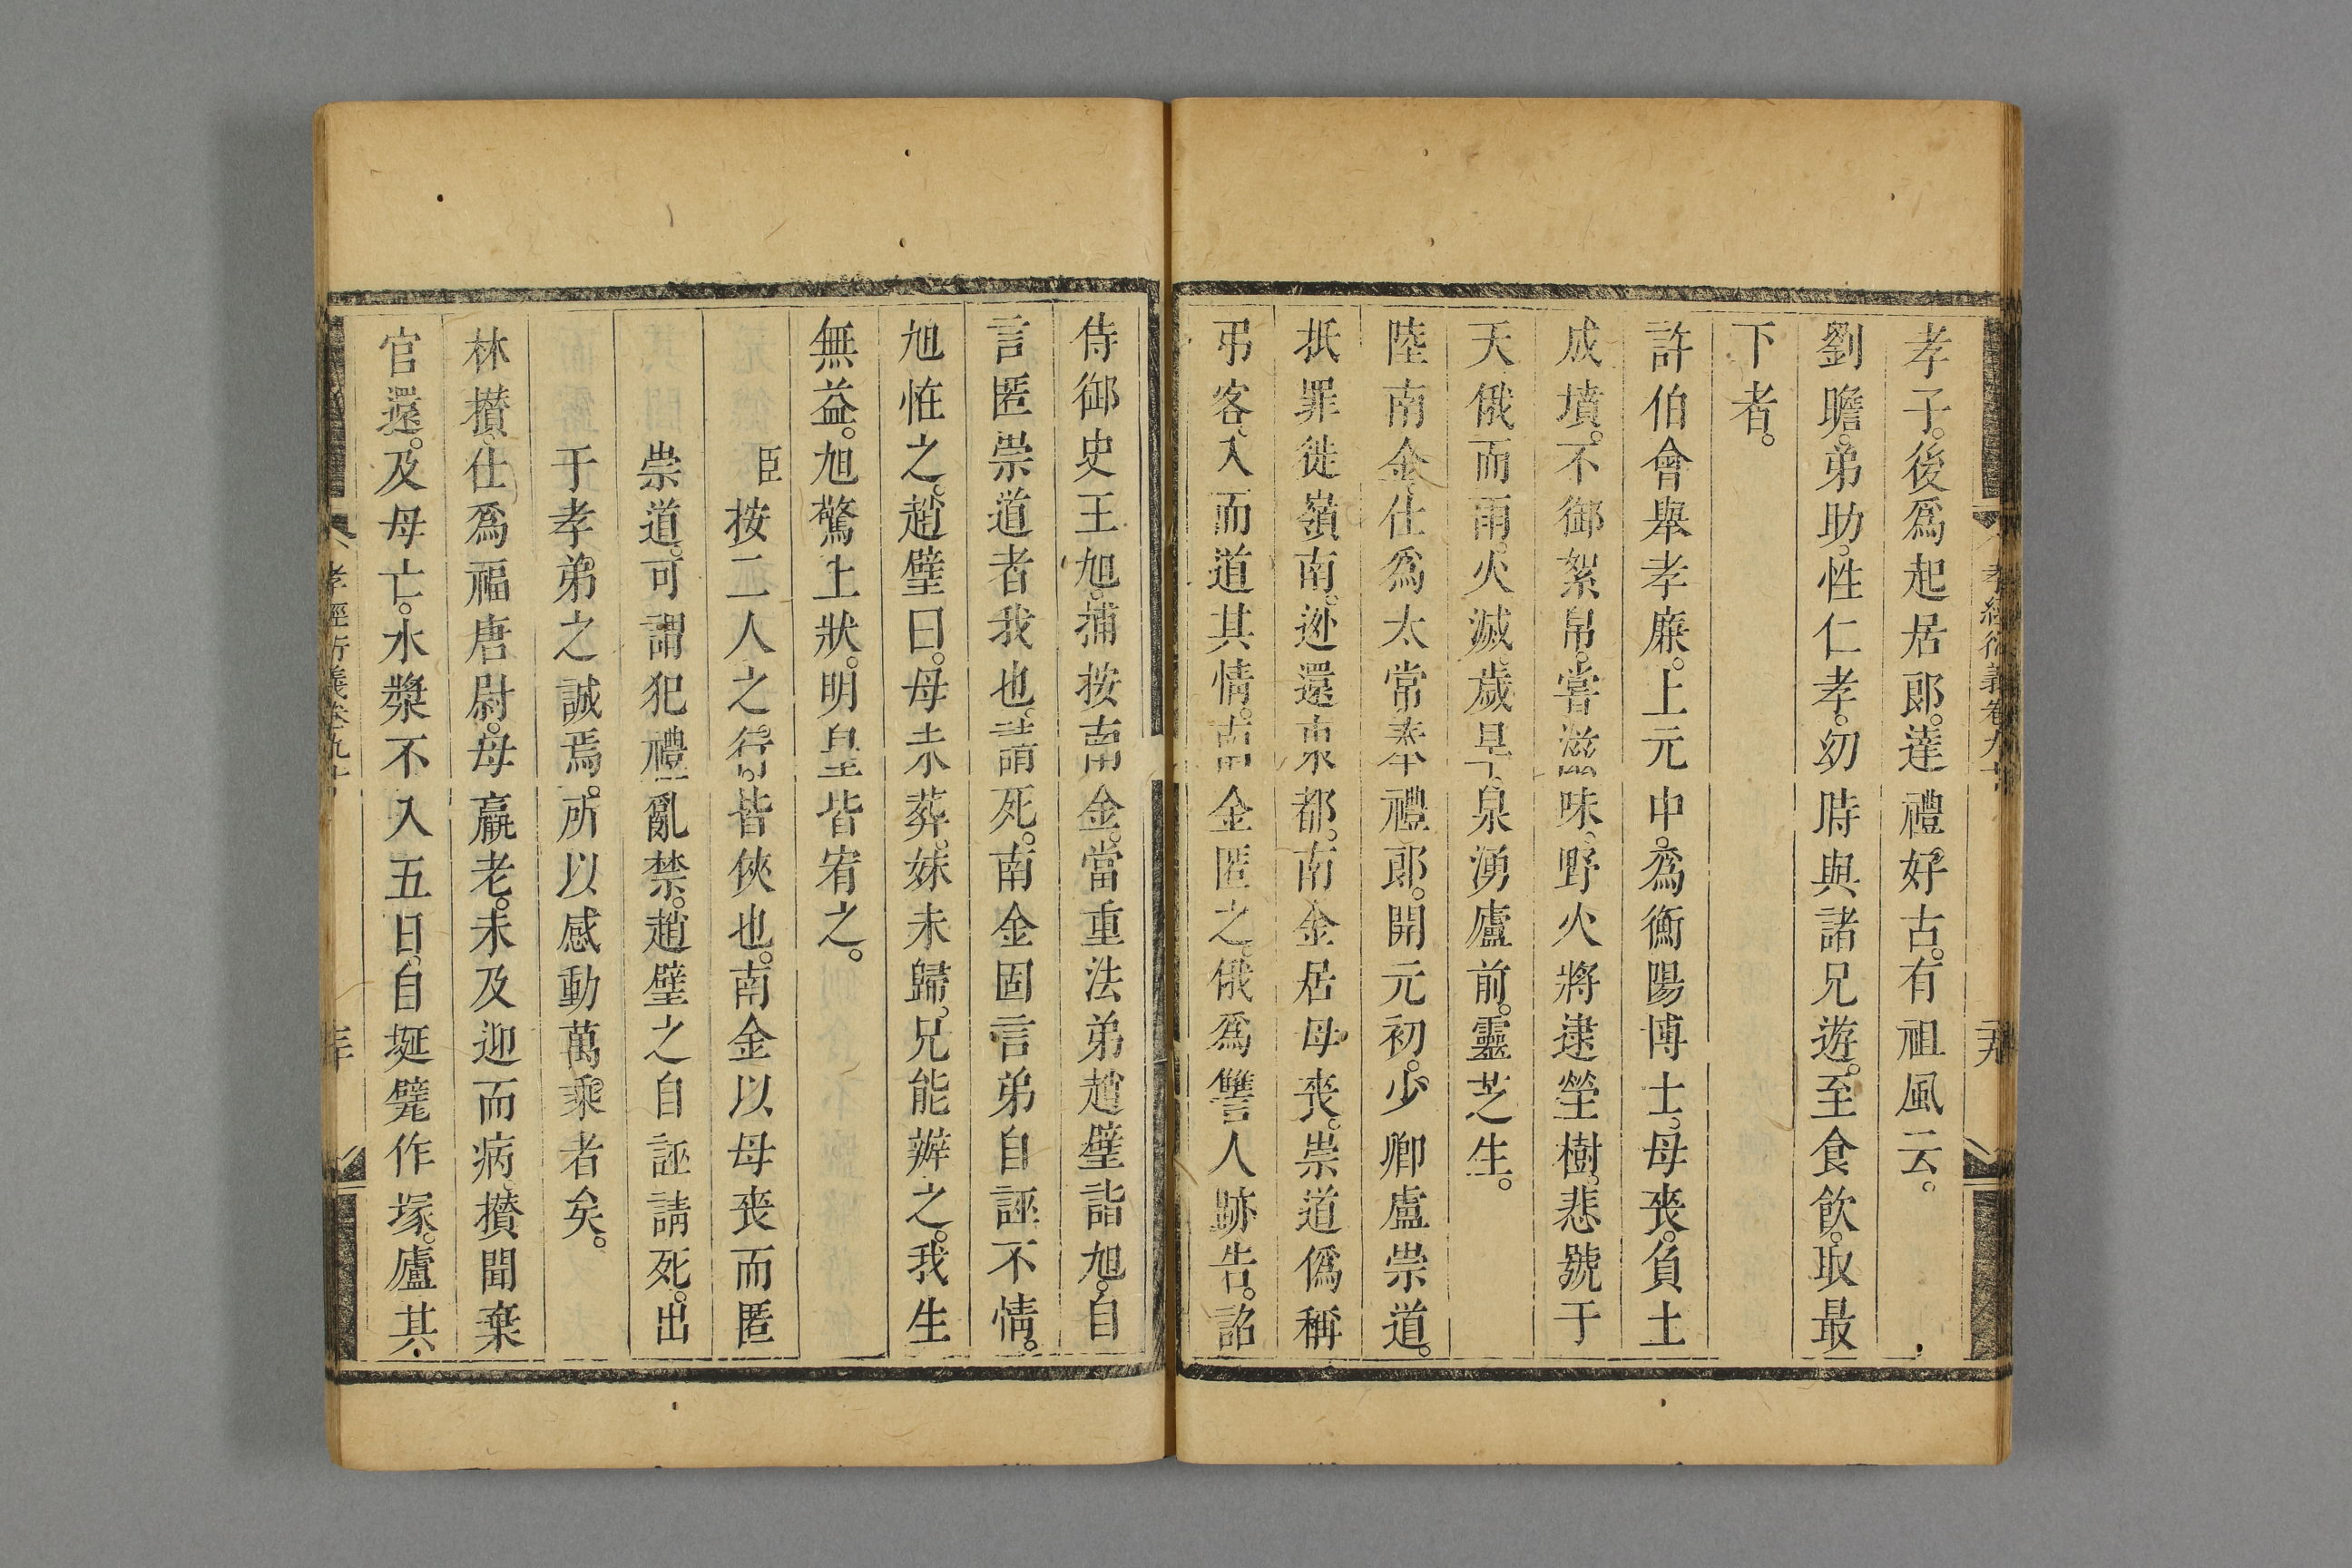 孝子。後爲起居郎。達禮好古。有祖風云。
劉瞻。弟助。性仁孝。幼時與諸兄遊。至食飲。取最
下者。
許伯會舉孝廉。上元中。爲衡陽博士。母喪。負土
成墳。不御絮帛。嘗滋味。野火將逮塋樹。悲號于
天俄而雨。火滅。歲旱。泉湧廬前。靈芝生。
陸南金。仕爲太常奉禮郎。開元初。少卿盧崇道。
抵罪徙嶺南。逃還東都。南金居母喪。崇道僞稱
弔客。入而道其情。南金匿之。俄爲讐人跡告。詔
侍御史王旭。捕按南金。當重法弟趙璧詣旭。自
言匿崇道者我也。請死。南金固言弟自誣不情。
旭怪之。趙璧曰。母未葬。妹未歸。兄能辦之。我生
無益。旭驚上狀。明皇皆宥之。
臣按二人之行。皆俠也。南金以母喪而匿
崇道。可謂犯禮亂禁。趙璧之自誣請死。出
于孝弟之誠焉。所以感動萬乘者矣。
林攢。仕爲福唐尉。母羸老。未及迎而病。攢聞棄
官還。及母亡。水漿不入五日。自埏甓作塚。廬其
孝經衍義卷九十